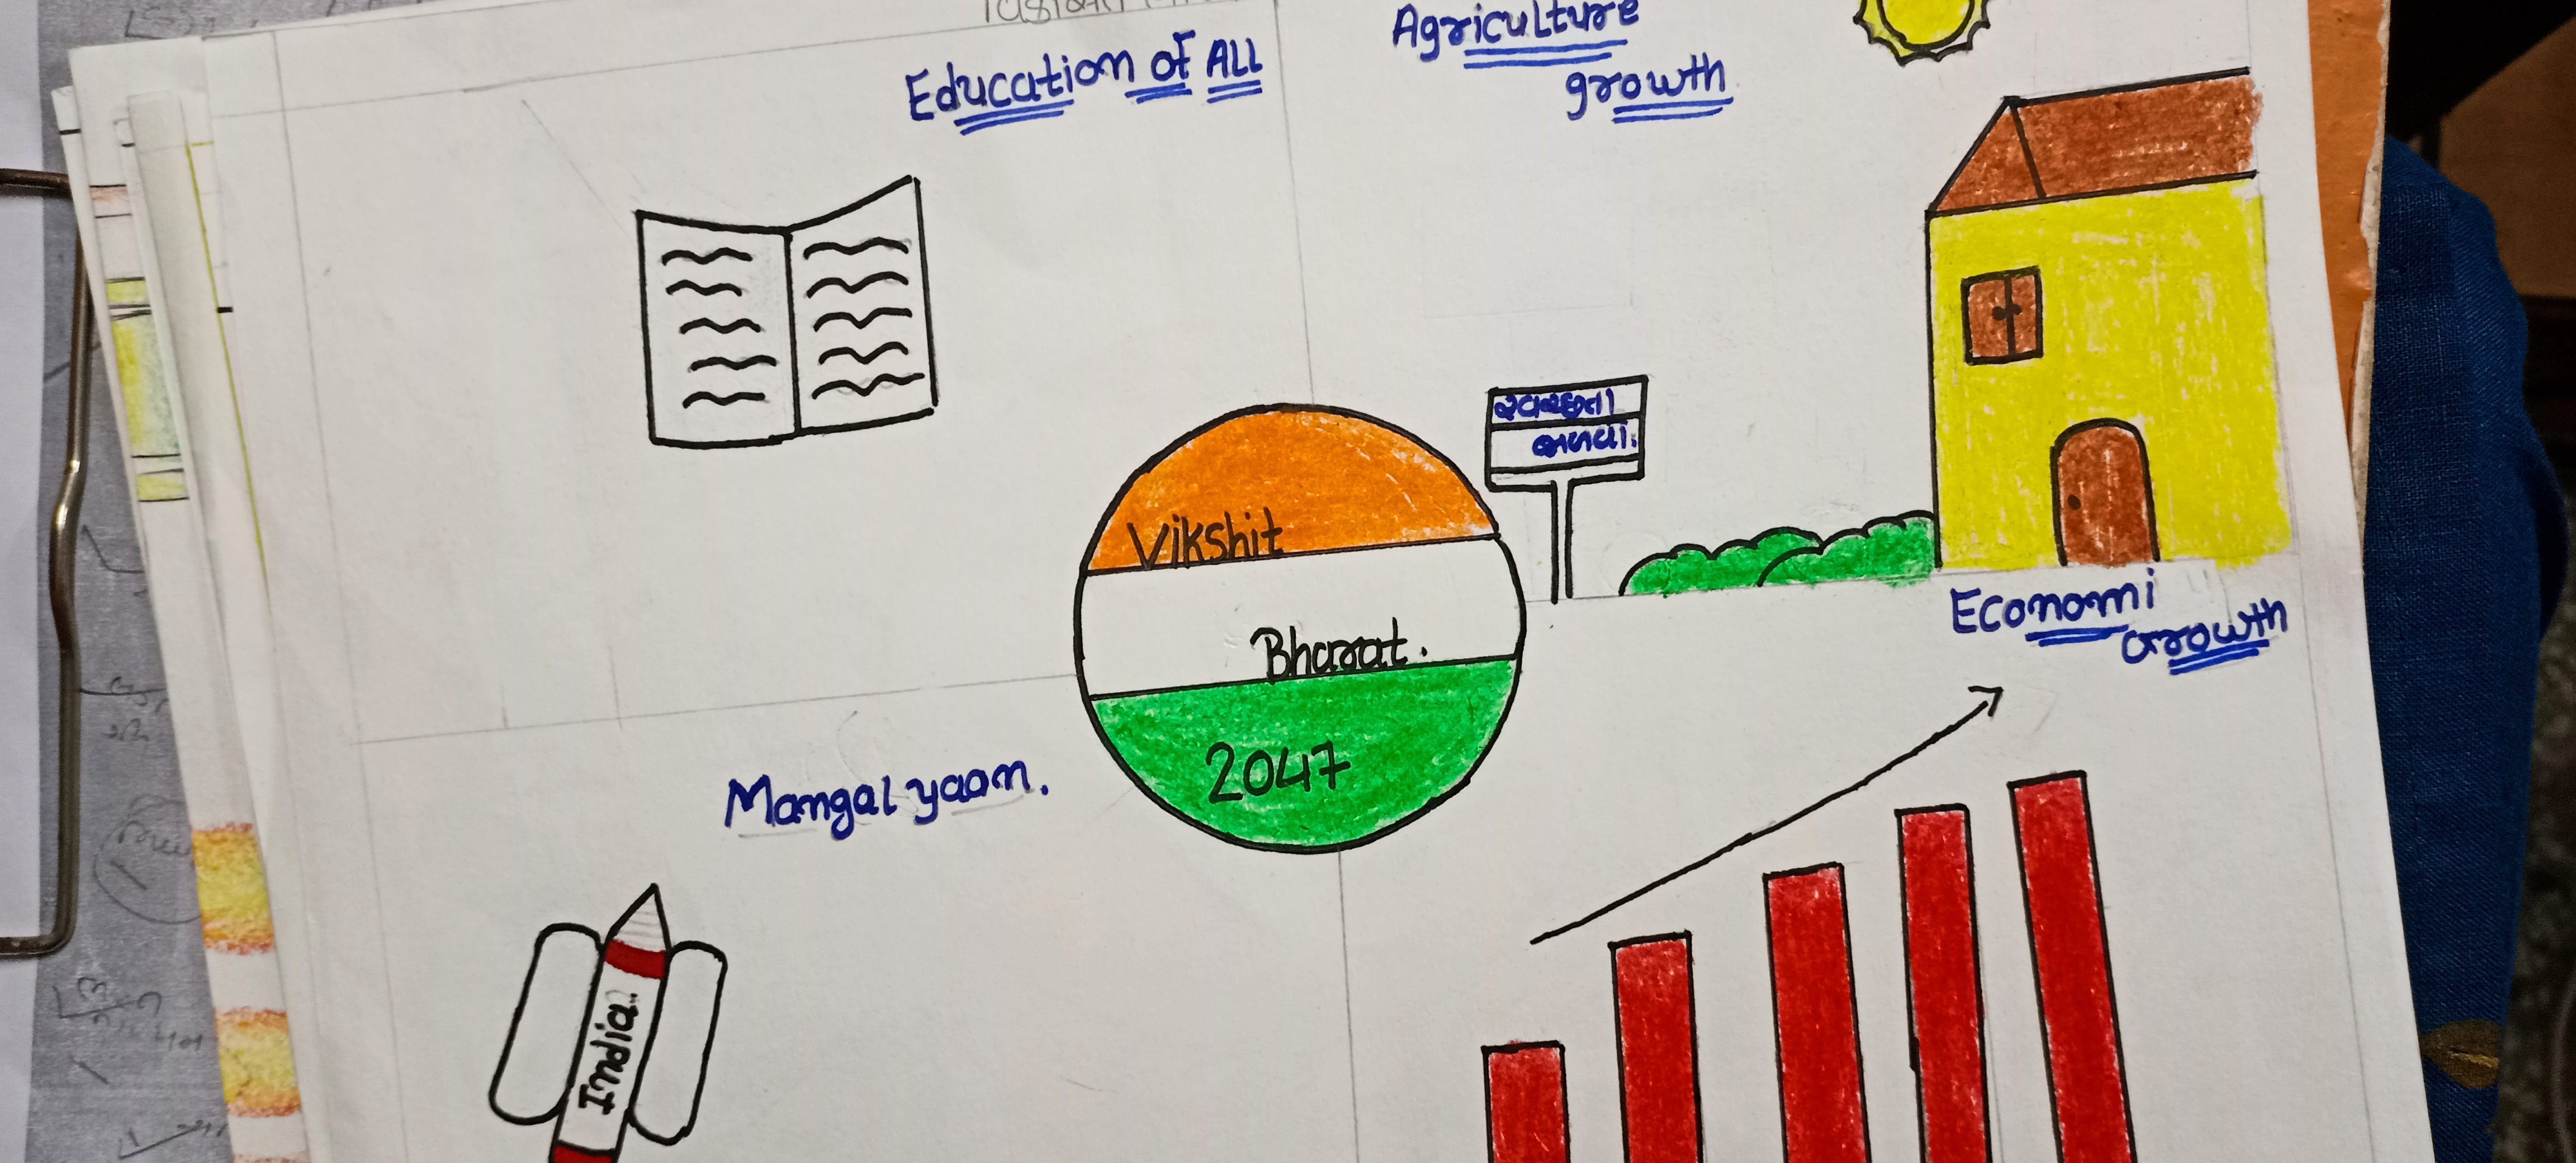 Education of ALL
Agriculture
growth
સ્વચ્છતા
જાળવો.
Vikshit
Bharat.
2047
Economi
Growth
Mangal yaan.
India